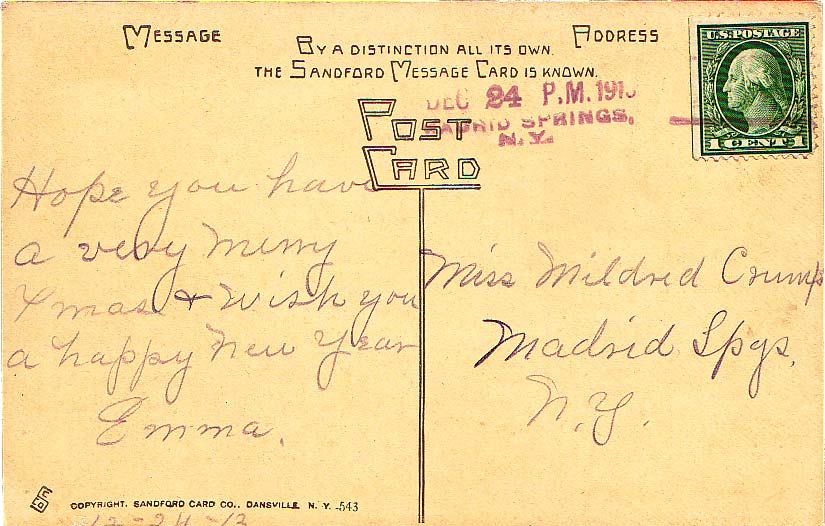 MESSAGE
BY A DISTINCTION ALL ITS OWN.
THE SANDFORD MESSAGE CARD IS KNOWN.
ADDRESS
U.S. POSTAGE
1 CENT 1
DEC 24 P.M. 191
MADRID SPRINGS,
N.Y.
POST
CARD
Hope you have
a very Merry
Xmas & Wish you
a happy New Year
Emma.
Miss Mildred Crump
Madrid Spgs,
N.Y.
COPYRIGHT. SANDFORD CARD CO., DANSVILLE, N. Y. 543
12-24-13